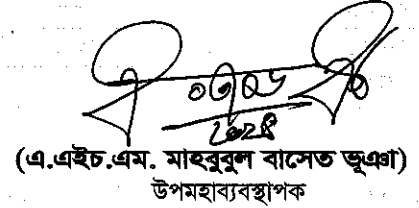 (এ.এইচ.এম. মাহবুবুল বাসেত ভূঞা)
উপমহাব্যবস্থাপক